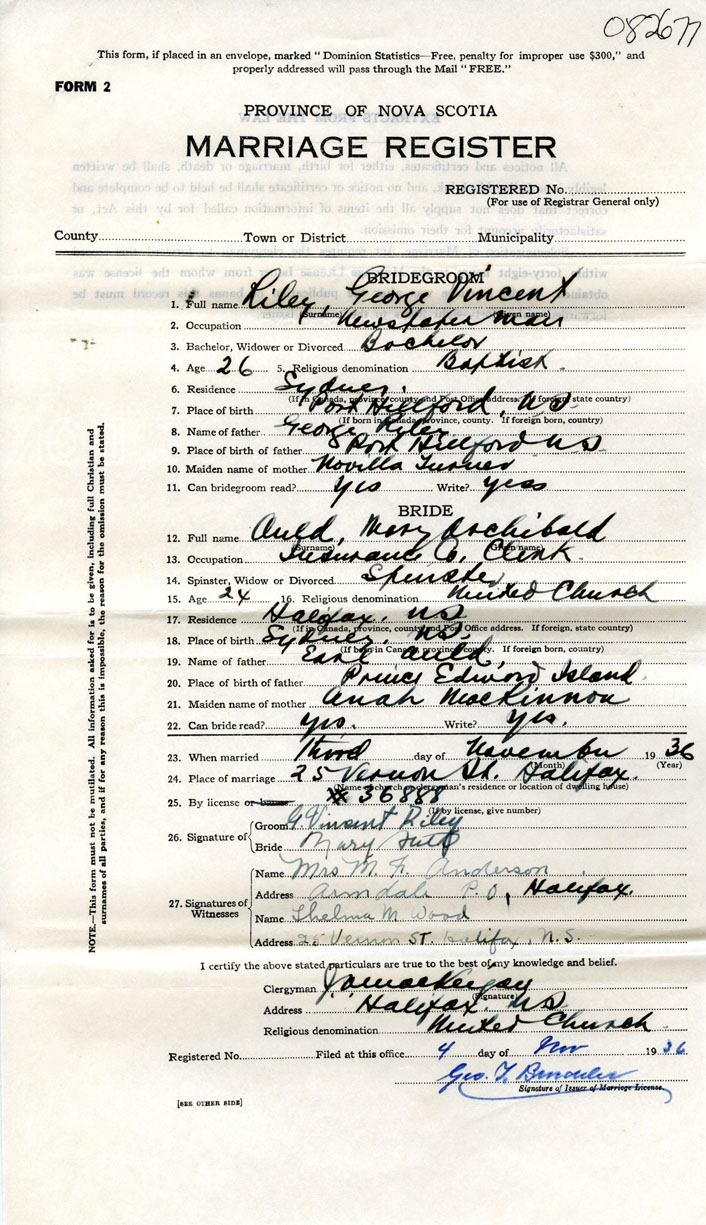 082677
This form, if placed in an envelope, marked "Dominion Statistics—Free, penalty for improper use $300," and
properly addressed will pass through the Mail "FREE."
FORM 2
PROVINCE OF NOVA SCOTIA
MARRIAGE REGISTER
REGISTERED No.
(For use of Registrar General only)
County Town or District Municipality
BRIDEGROOM
1. Full name Riley, George Vincent
(Surname) (Given name)
2. Occupation Newspaper Man
3. Bachelor, Widower or Divorced Bachelor
4. Age 26 5. Religious denomination Baptist
6. Residence Sydney.
(If in Canada, province, county and Post Office address. If foreign, state country)
7. Place of birth Port Hillford, N.S.
(If born in Canada, province, county. If foreign born, country)
8. Name of father George Riley
9. Place of birth of father Port Hillford N.S.
10. Maiden name of mother Novilla Turner
11. Can bridegroom read? yes Write? yess
BRIDE
12. Full name Auld, Mary Archibald
(Surname) (Given name)
13. Occupation Insurance Co. Clerk
14. Spinster, Widow or Divorced Spinster
15. Age 24 16. Religious denomination United Church
17. Residence Halifax, N.S.
(If in Canada, province, county and Post Office address. If foreign, state country)
18. Place of birth Sydney, N.S.
(If born in Canada, province, county. If foreign born, country)
19. Name of father Earl Auld,
20. Place of birth of father Prince Edward Island
21. Maiden name of mother MacKinnon
22. Can bride read? yes. Write? yes.
23. When married Third day of November 1936
(Month) (Year)
24. Place of marriage 25 Vernon St. Halifax.
(Name of church or clergyman's residence or location of dwelling house)
25. By license or banns # 36888
(If by license, give number)
26. Signature of Groom G. Vincent Riley
Bride Mary Auld
27. Signatures of Witnesses
Name Mrs M. F. Anderson
Address Armdale P.O., Halifax.
Name Thelma M Wood
Address 25 Vernon ST. Halifax, N.S.
I certify the above stated particulars are true to the best of my knowledge and belief.
Clergyman
(Signature)
Address Halifax, N.S.
Religious denomination United Church
Registered No. Filed at this office 4 day of Nov 1936
Geo. T.
Signature of Issuer of Marriage License.
[SEE OTHER SIDE]
NOTE.—This form must not be mutilated. All information asked for is to be given, including full Christian and
surnames of all parties, and if for any reason this is impossible, the reason for the omission must be stated.